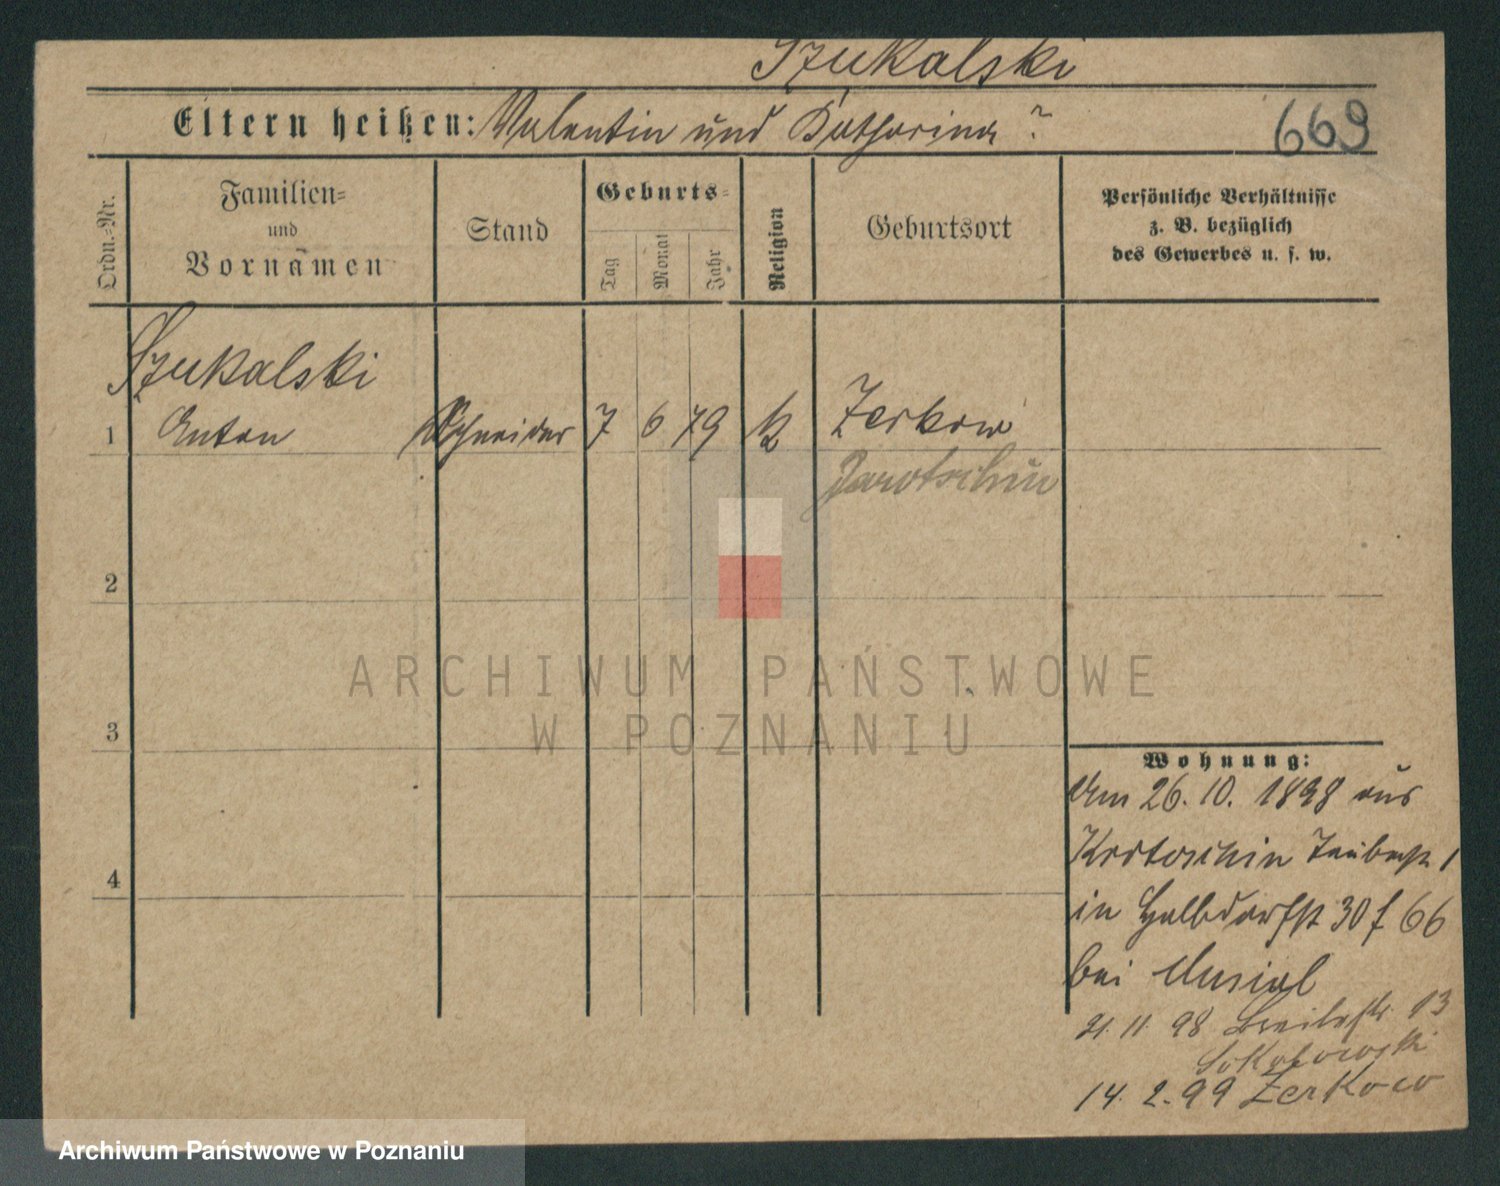 Szukalski
Eltern heißen: Valentin und Katharina ?
669
Ordn.-Nr.
Familien-
und
Vornamen
Stand
Geburts-
Tag
Monat
Jahr
Religion
Geburtsort
Persönliche Verhältnisse
z. B. bezüglich
des Gewerbes u. s. w.
Szukalski
1 Anton Schneider 7 6 79 k Zerkow
Jarotschin
2
3
4
ARCHIWUM PAŃSTWOWE
W POZNANIU
Wohnung:
Am 26. 10. 1898 aus
Krotoschin 1
in Halbdorfst 30 f 66
bei Musial
21. 11. 98 Breitestr. 13
14. 2. 99 Zerkow
Archiwum Państwowe w Poznaniu